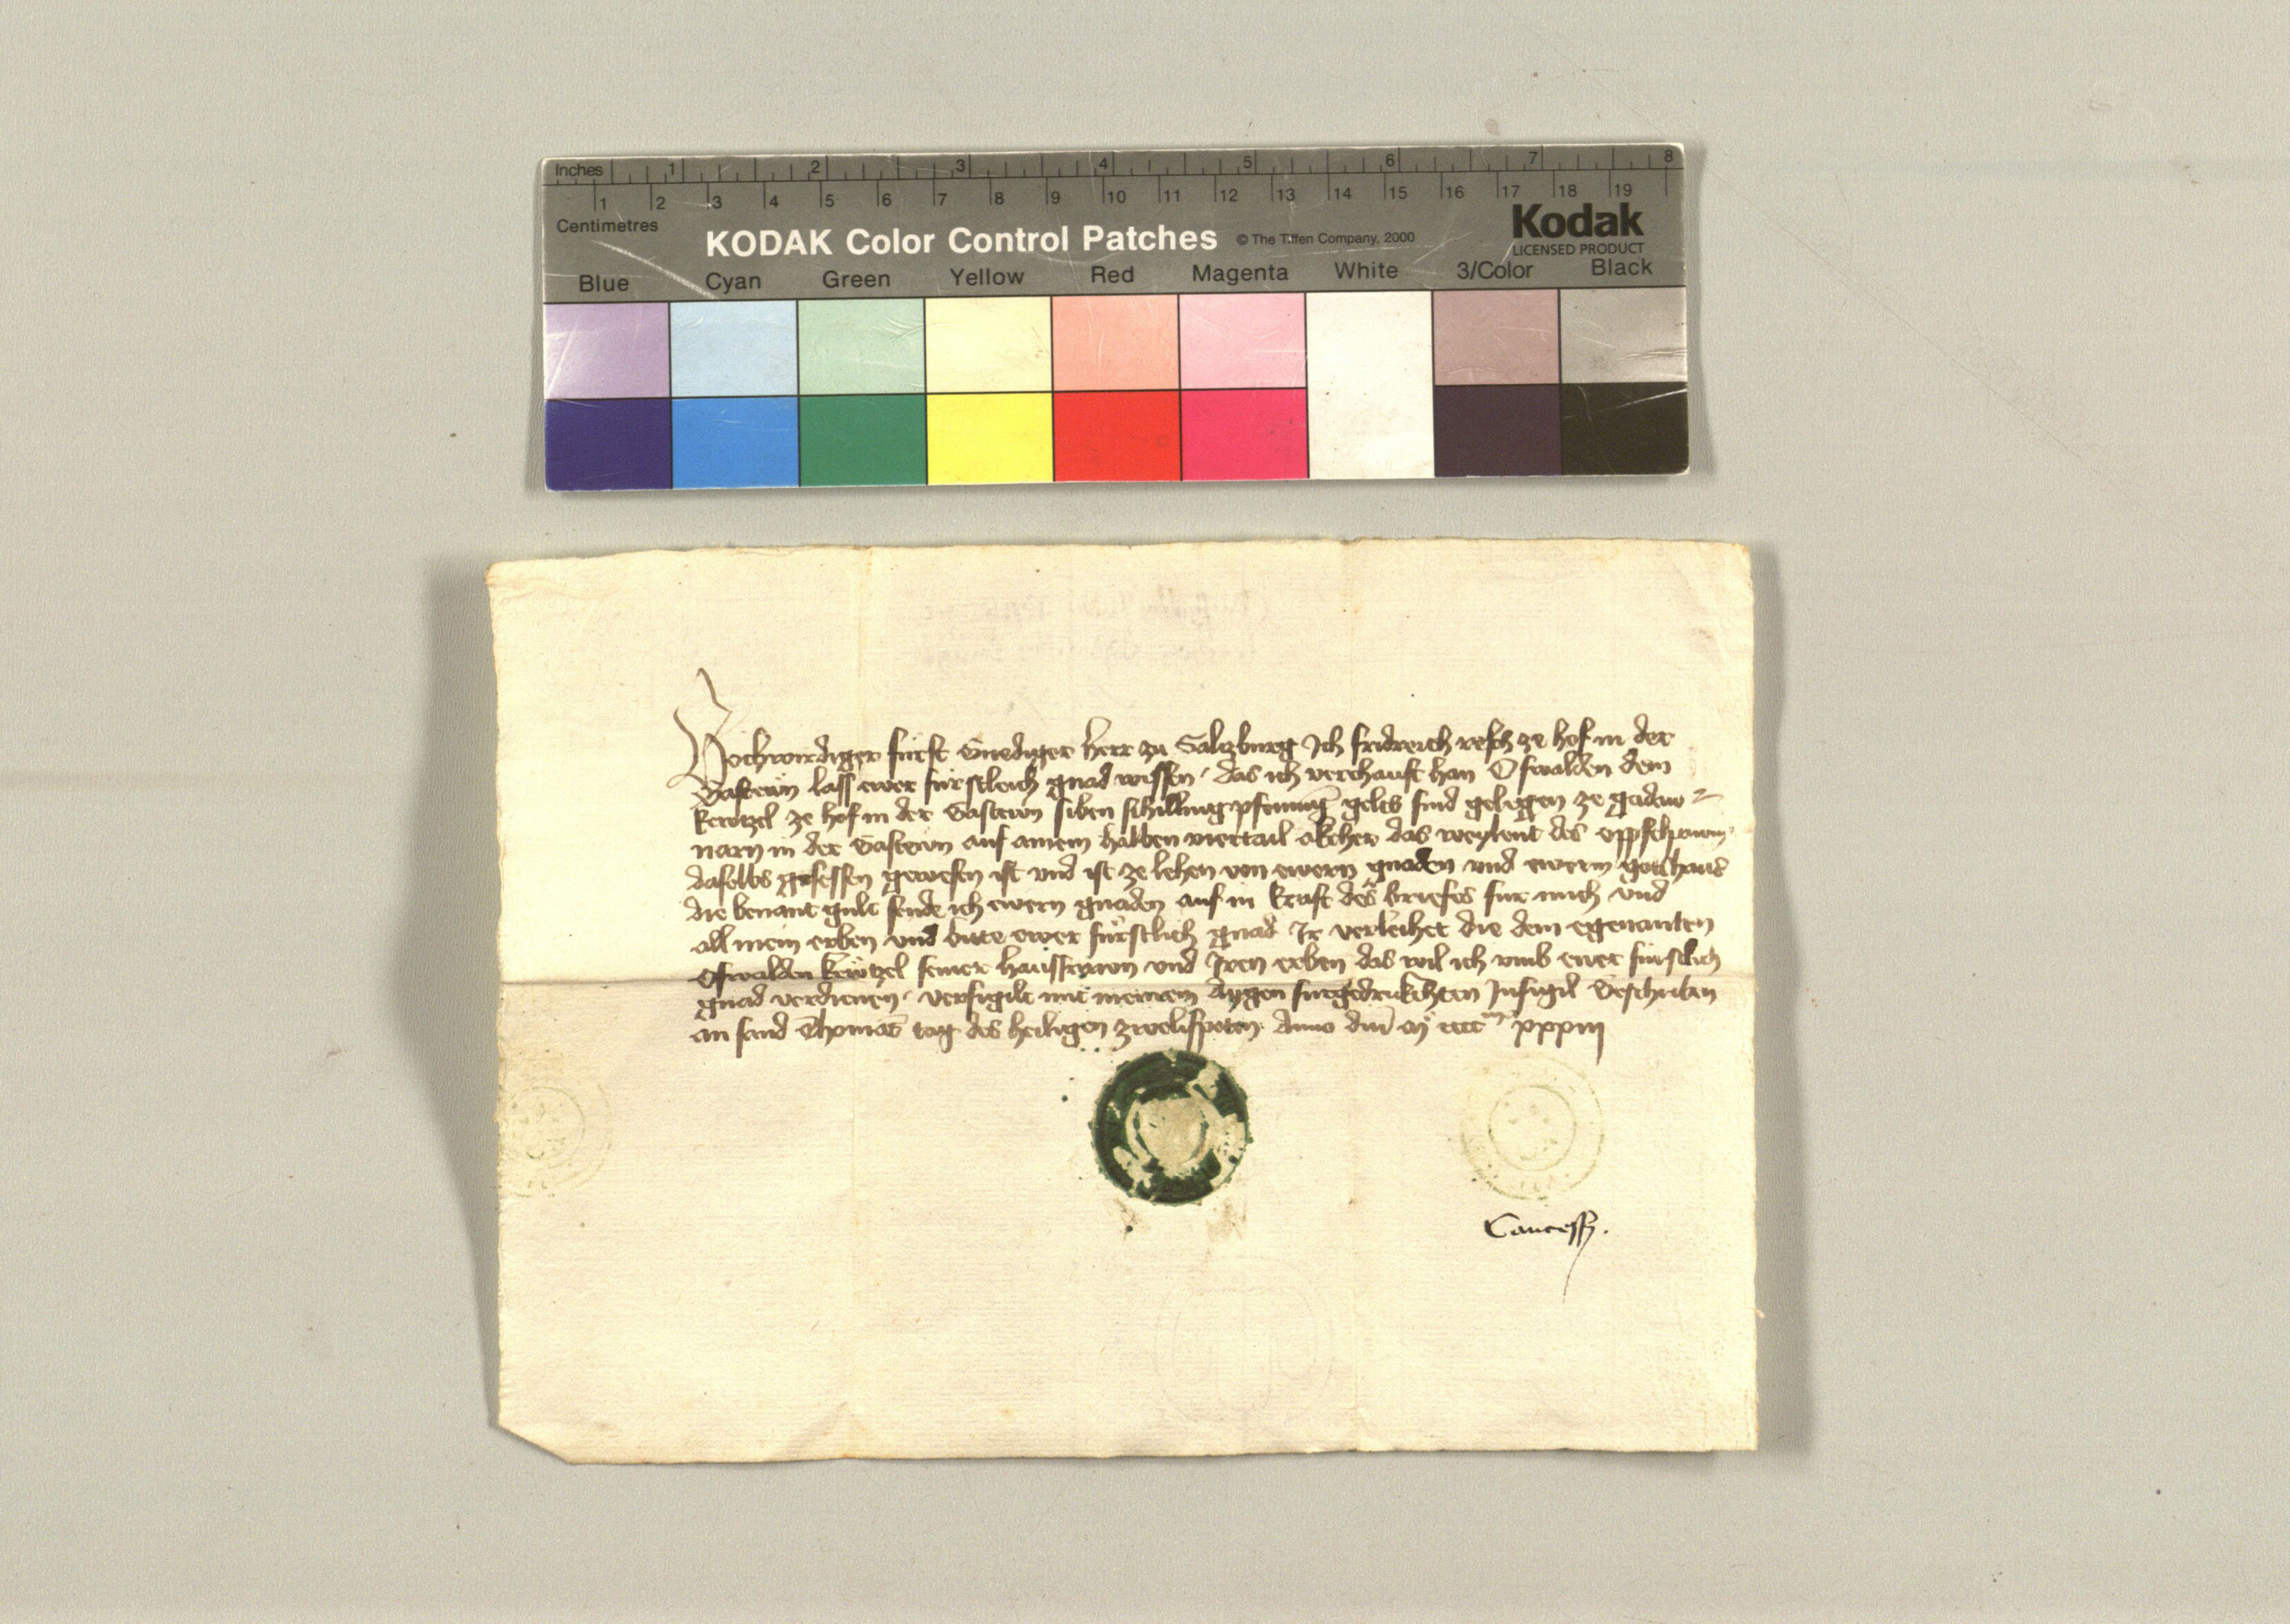 Inches 1 2 3 4 5 6 7 8
1 2 3 4 5 6 7 8 9 10 11 12 13 14 15 16 17 18 19
Centimetres
KODAK Color Control Patches © The Tiffen Company, 2000 Kodak
LICENSED PRODUCT
Blue Cyan Green Yellow Red Magenta White 3/Color Black
Hochwirdiger fürst Gnediger herr zu Saltzburg Ich fridreich resch ze hof in der
Gastewn lass ewer fürstleich gnad wissen das ich verchauft han Oswalden dem
kewtzel ze hof in der Gastewn siben schilling pfenning gelts sind gelegen ze
in der Gastewn auf ainem halben viertail akcher das weylent des
daselbs gesessen gewesen ist und ist ze lehen von ewern gnaden und ewerm gotzhaus
die benant gült sende ich ewern gnaden auf in kraft des briefes für mich und
all mein erben und bitte ewer fürstlich gnad Ir verleihet die dem egenanten
Oswalden kewtzel seiner hausfrawn und Iren erben das wil ich umb ewer fürstlich
gnad verdienen versigilt mit meinem Aygen furgedrukchten Insigil Geschriben
an sand Thomas tag des heiligen zwelifpoten Anno dni mo cccc